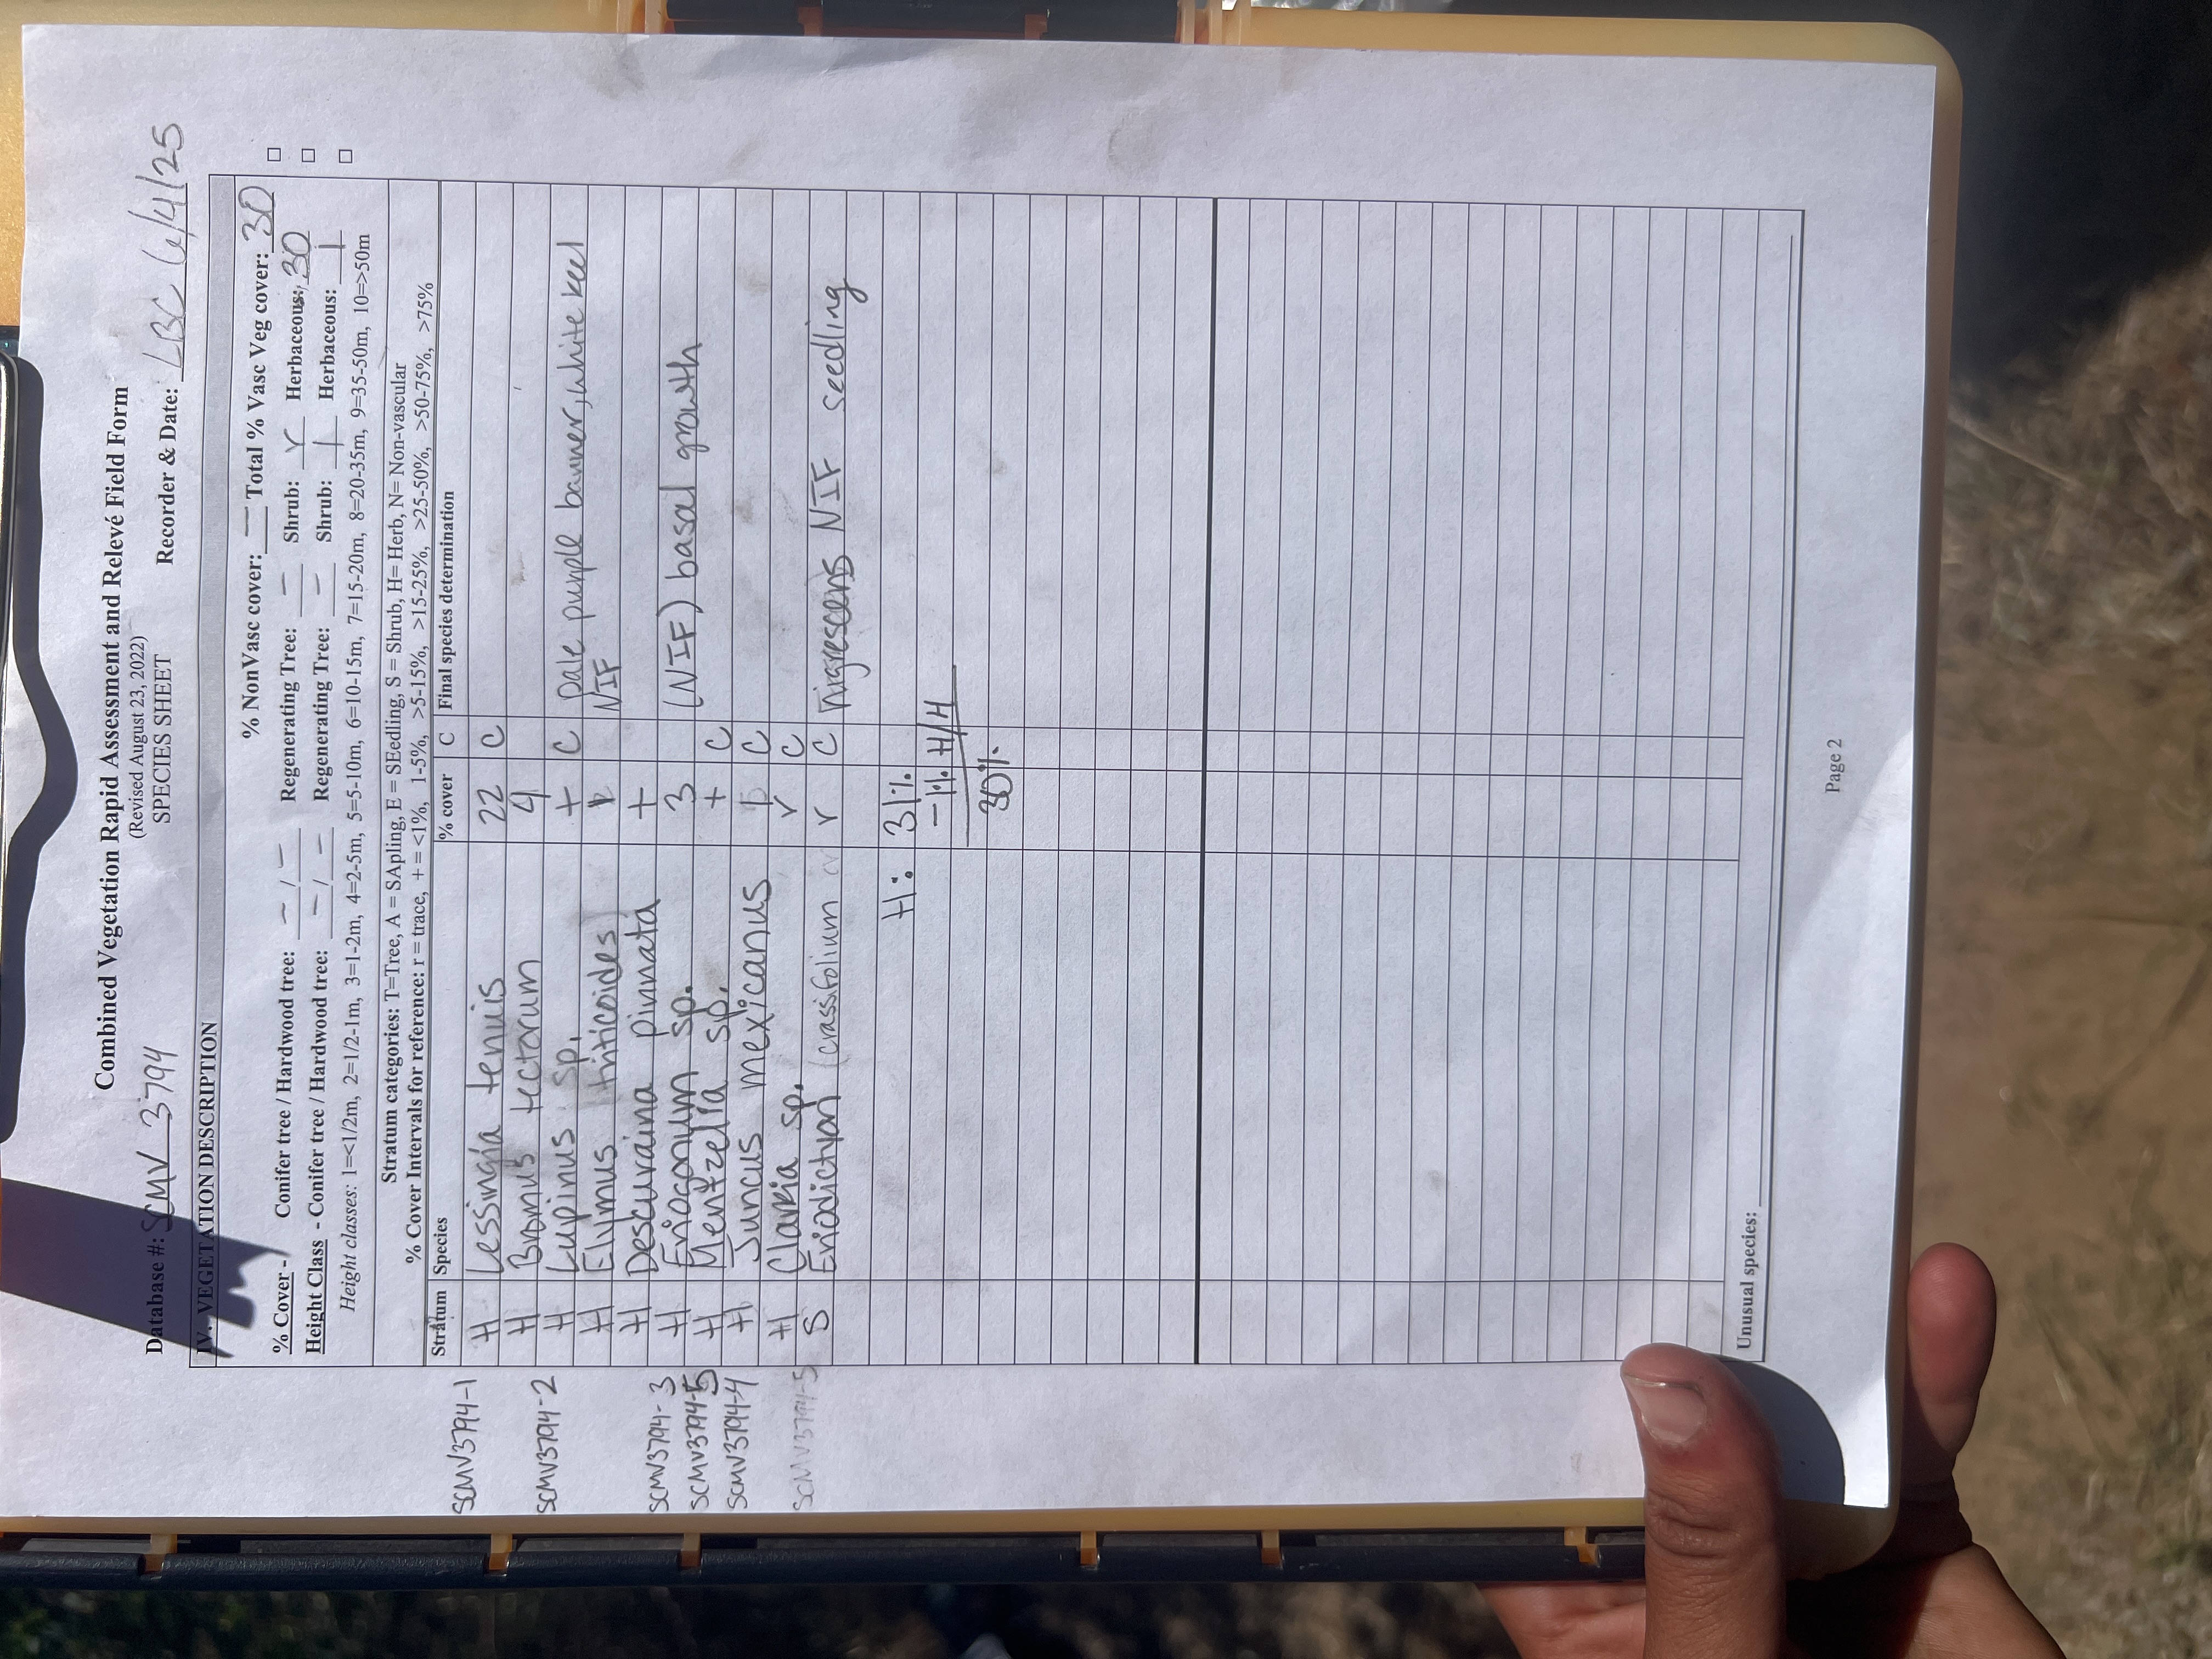 Combined Vegetation Rapid Assessment and Relevé Field Form
(Revised August 23, 2022)
SPECIES SHEET
Database #: SCMV 3794 Recorder & Date: LBC 6/4/25
IV. VEGETATION DESCRIPTION
% NonVasc cover: — Total % Vasc Veg cover: 30
% Cover - Conifer tree / Hardwood tree: — / — Regenerating Tree: — Shrub: r Herbaceous: 30
Height Class - Conifer tree / Hardwood tree: — / — Regenerating Tree: — Shrub: 1 Herbaceous: 1
Height classes: 1=<1/2m, 2=1/2-1m, 3=1-2m, 4=2-5m, 5=5-10m, 6=10-15m, 7=15-20m, 8=20-35m, 9=35-50m, 10=>50m
Stratum categories: T=Tree, A = SApling, E = SEedling, S = Shrub, H= Herb, N= Non-vascular
% Cover Intervals for reference: r = trace, + = <1%, 1-5%, >5-15%, >15-25%, >25-50%, >50-75%, >75%
Stratum Species % cover C Final species determination
SCMV3794-1 H Lessingia tenuis 22 C
H Bromus tectorum 4
SCMV3794-2 H Lupinus sp. + C pale purple banner, white keel
H Elymus (triticoides) NIF
H Descurainia pinnata +
SCMV3794-3 H Eriogonum sp. 3 (NIF) basal growth
SCMV3794-5 H Mentzelia sp. + C
SCMV3794-4 H Juncus mexicanus C
H Clarkia sp. r C
SCMV3794-5 S Eriodictyon (crassifolium or r C NIF seedling
H: 31%
-1% H/H
30%
Unusual species:
Page 2